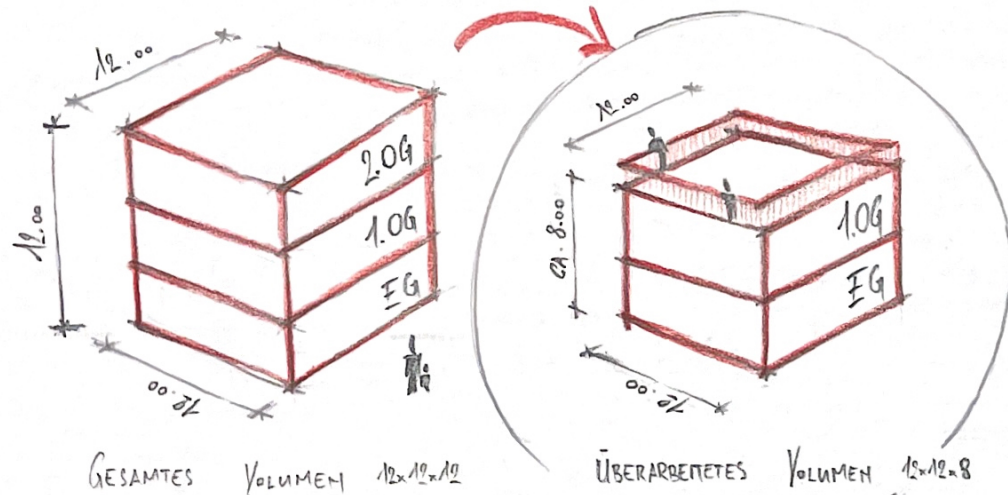 12.00
12.00
2.OG
1.OG
EG
12.00
GESAMTES VOLUMEN 12x12x12
12.00
CA. 8.00
1.OG
EG
12.00
ÜBERARBEITETES VOLUMEN 12x12x8